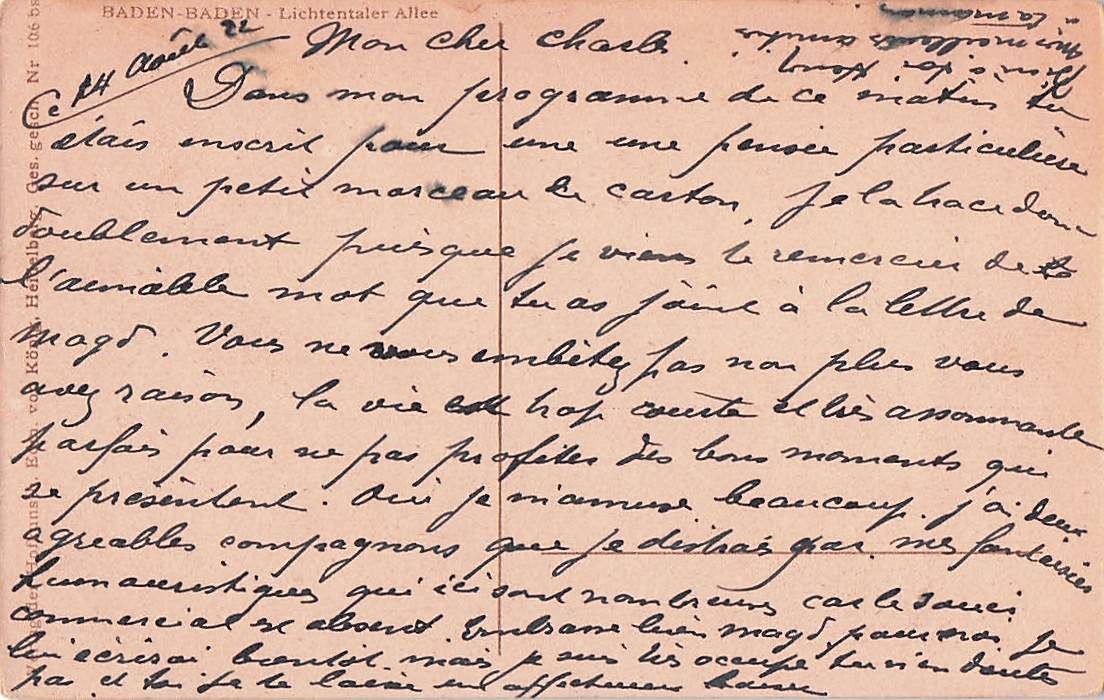 BADEN-BADEN - Lichtentaler Allee
Ce 14 Août 22
Mon cher Charles.
Dans mon programme de ce matin tu
étais inscrit pour une une pensée particulière
sur un petit morceau de carton, je la trace donc
doublement puisque je viens te remercier de
l'aimable mot que tu as joint à la lettre de
Magd. Vous ne vous embêtez pas non plus vous
avez raison, la vie est trop courte et très assommante
parfois pour ne pas profiter des bons moments qui
se présentent. Oui je m'amuse beaucoup. j'ai deux
agréables compagnons que je distrais par mes fantaisies
humouristiques qui ici sont nombreuses car le souci
commercial est absent. Embrasse bien Magd pour moi, je
lui écrirai bientôt mais je suis très occupé tu n'en doutes
pas et toi je te laisse un affectueux baiser
mes meilleures amitiés
à ta maman
Verlag der Hofkunst Edm. von König, Heidelberg. Ges. gesch. Nr 106 bs